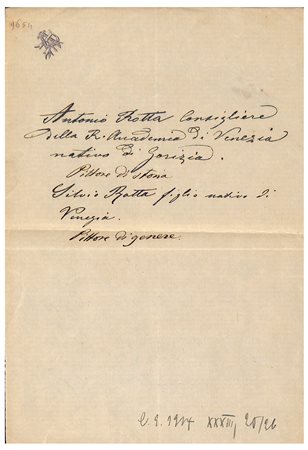 965
Antonio Rotta Consigliere
della R. Accademia di Venezia
nativo di Gorizia.
Pittore di storia
Silvio Rotta figlio nativo di
Venezia.
Pittore di genere.
XXXIII, 20/26